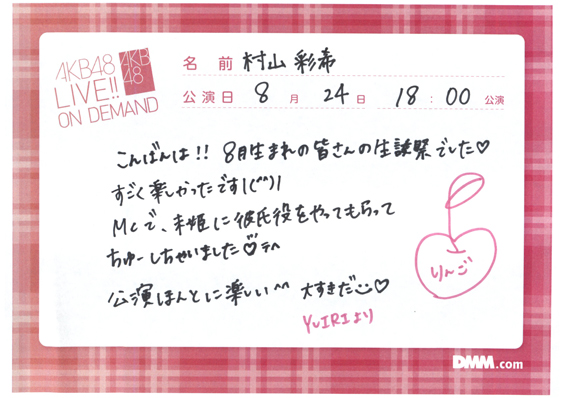 AKB48
LIVE!!
ON DEMAND
AKB
48
名 前 村山 彩希
公演日 8 月 24 日 18 : 00 公演
こんばんは!! 8月生まれの皆さんの生誕祭でした♡
すごく楽しかったです!(^^)!
MCで、未姫に彼氏役をやってもらって
ちゅーしちゃいました♡
公演ほんとに楽しい^^ 大すきだ♡
りんご
YUIRIより
DMM.com